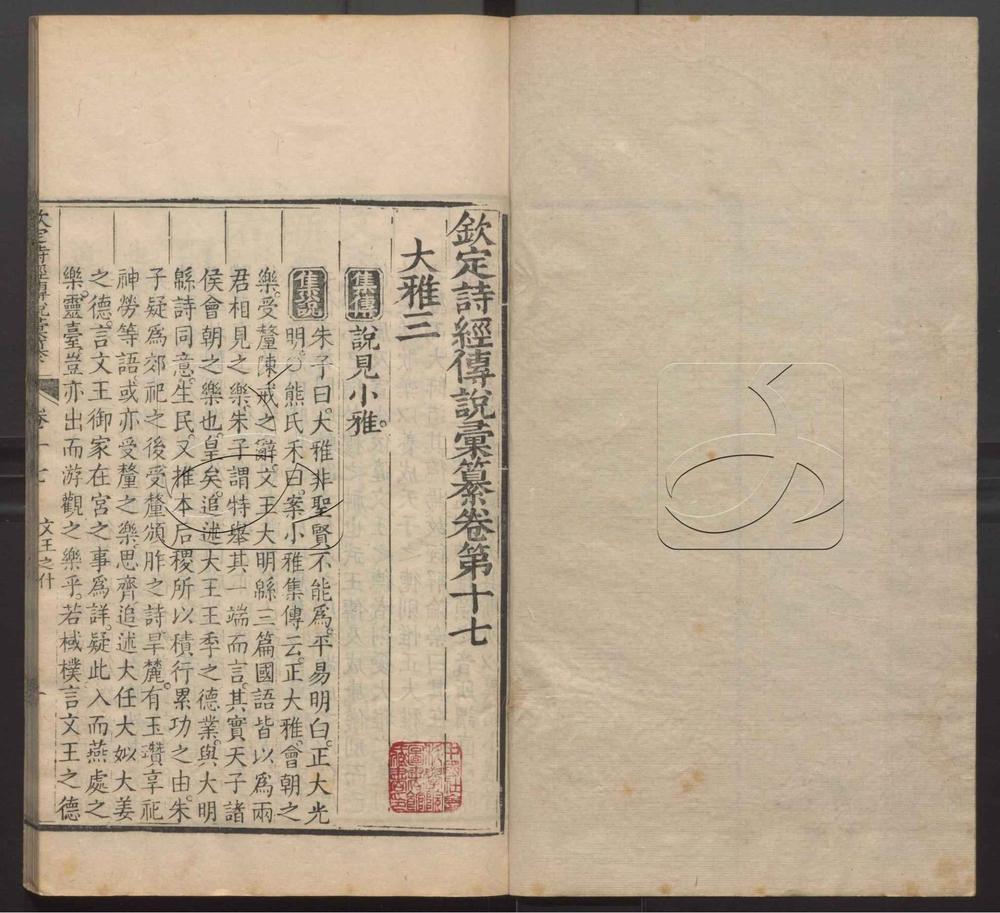 欽定詩經傳說彙纂卷第十七
大雅三
集傳 說見小雅。
集說 朱子曰。大雅非聖賢不能為。平易明白。正大光
明。○熊氏禾曰。案小雅集傳云。正大雅。會朝之
樂。受釐陳戒之辭。文王大明緜三篇國語皆以為兩
君相見之樂。朱子謂特舉其一端而言。其實天子諸
侯會朝之樂也。皇矣。追述大王王季之德業。與大明
緜詩同意。生民。又推本后稷所以積行累功之由。朱
子疑為郊祀之後受釐頒胙之詩。旱麓。有玉瓚享祀
神勞等語。或亦受釐之樂。思齊追述大任大姒大姜
之德。言文王御家在宮之事為詳。疑此入而燕處之
樂。靈臺豈亦出而游觀之樂乎。若棫樸言文王之德
欽定詩經傳說彙纂 卷十七 文王之什 一